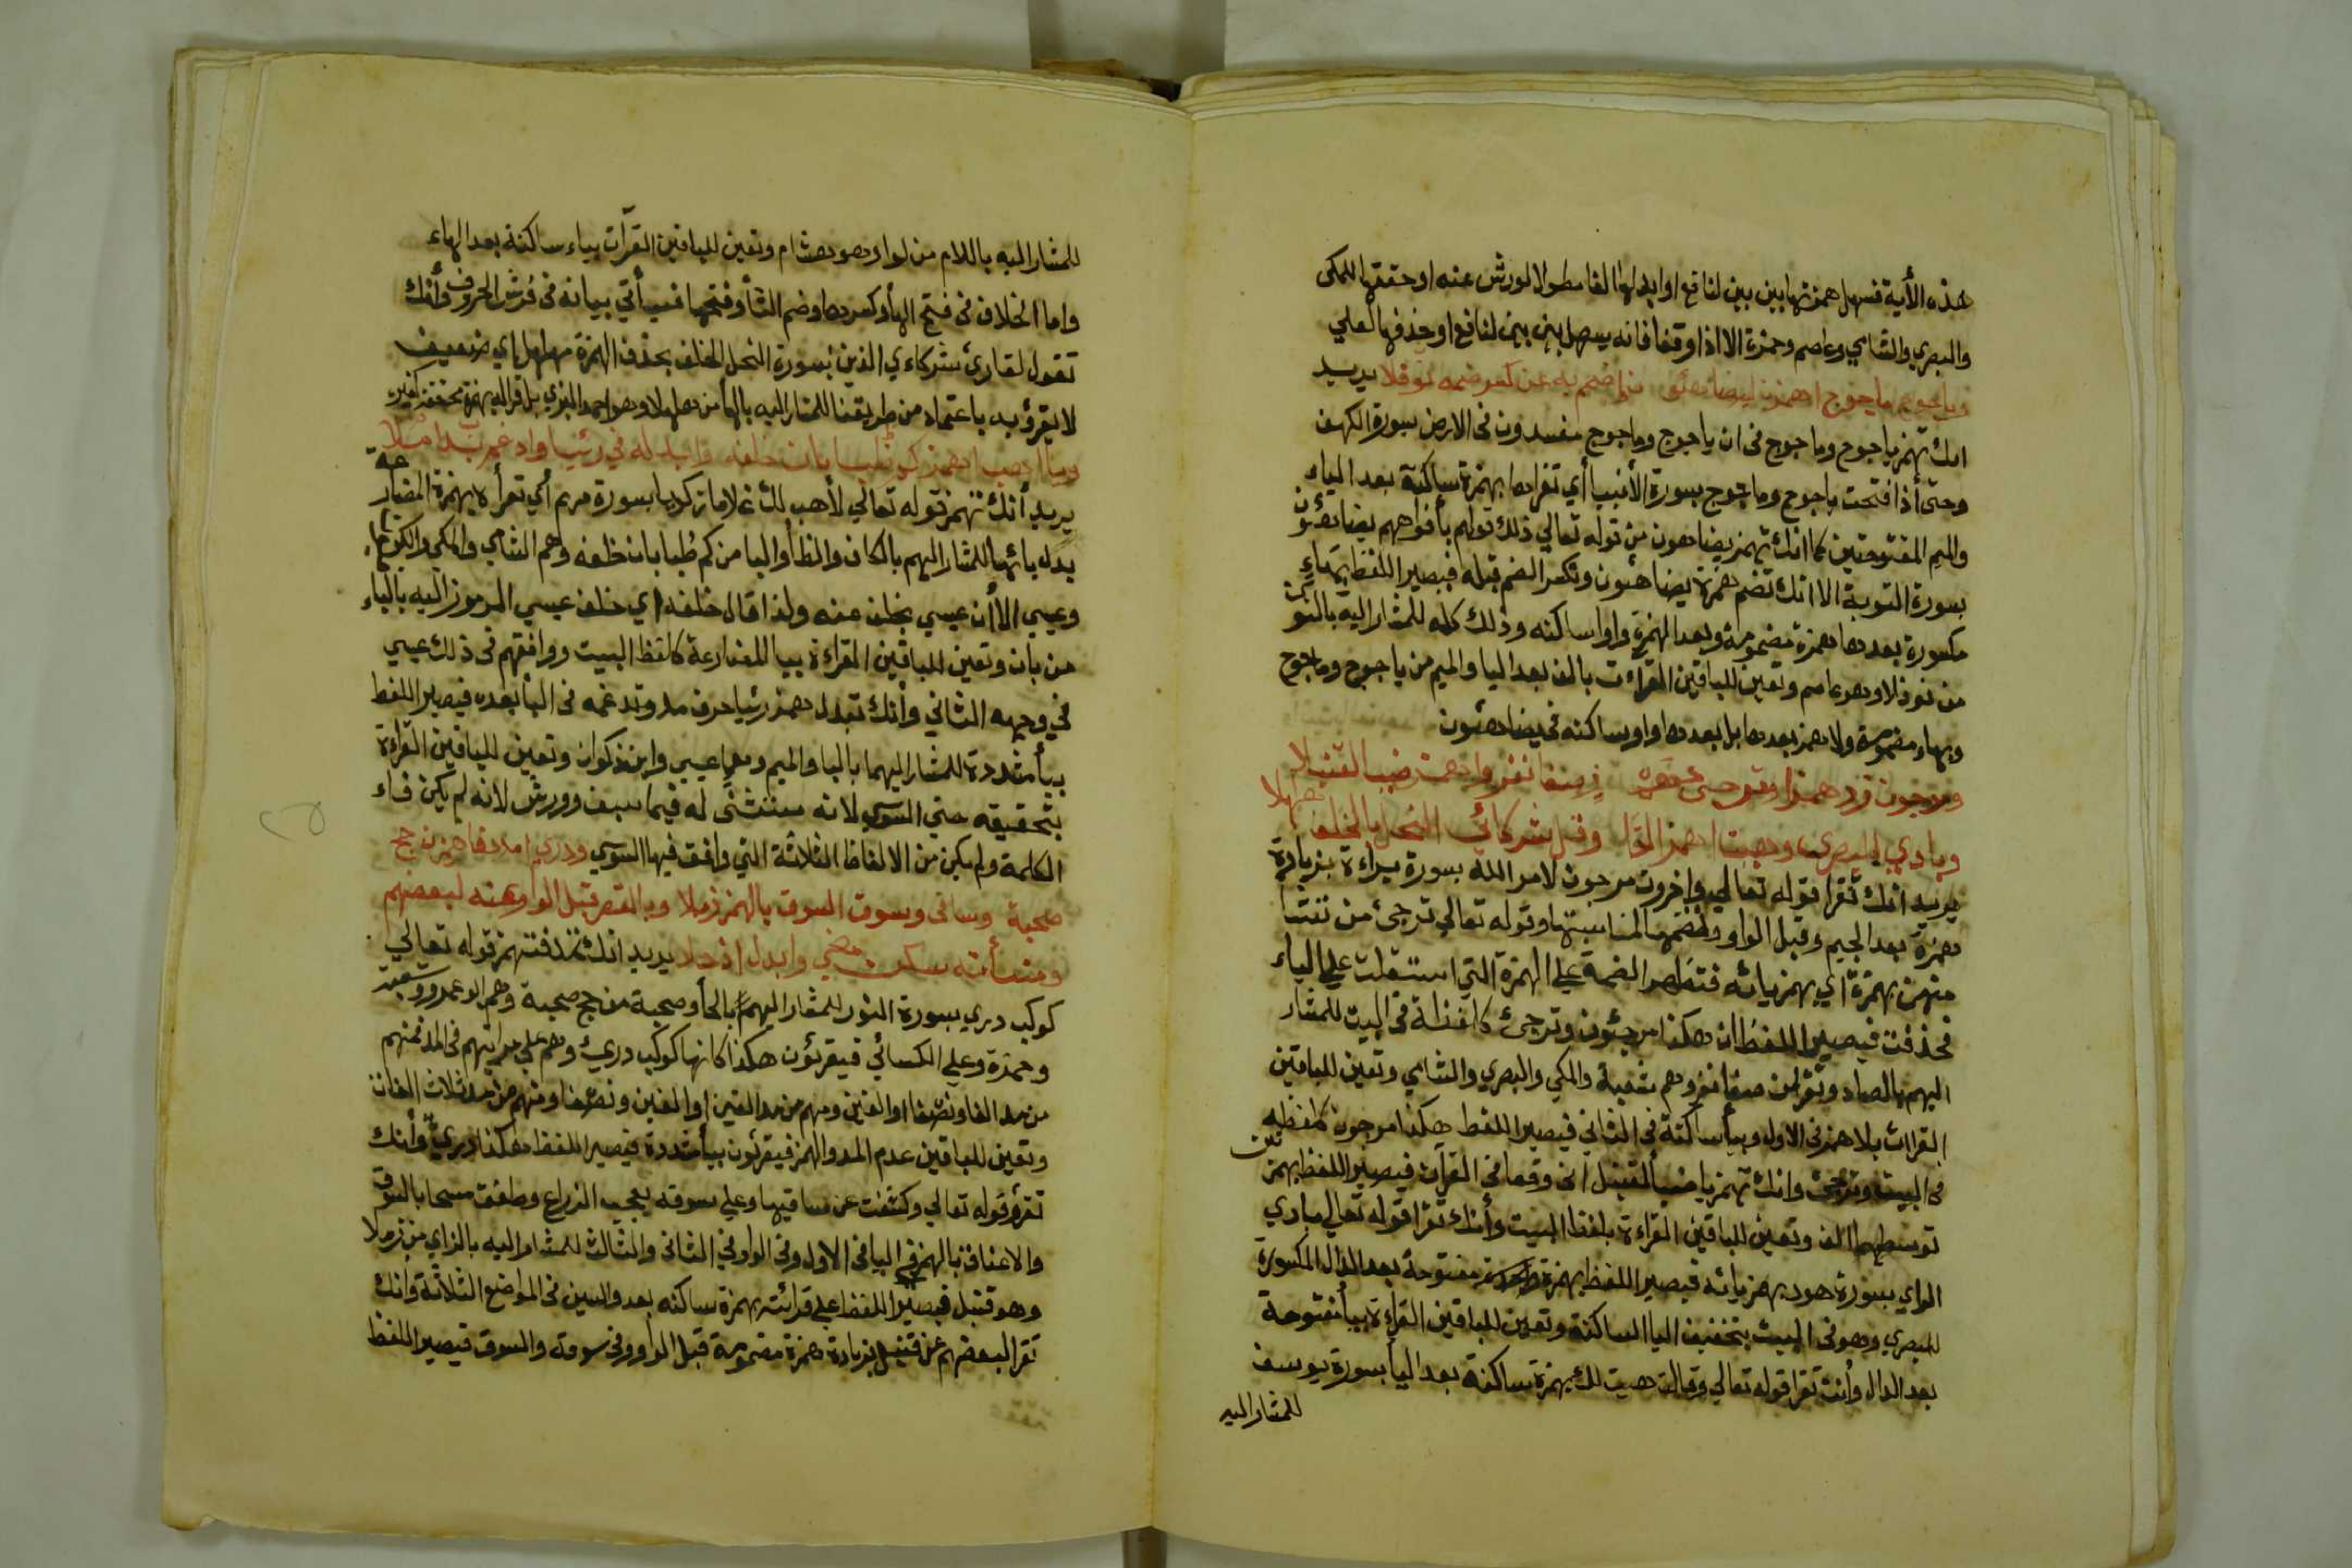 هذه الأية فسهل همزتها بين بين لنافع او ابدلها الفا مطولا لورش عنه او حققها للمكى
والبصري والشامي وعاصم وحمزة الا اذا وقفا فانه يسهل بين بين لنافع او حذفها لعلي
وياجوج ماجوج اهمزن يضاهئو ضم به عن كسر ضمه نوفلا يريد
انك تهمز ياجوج وماجوج فى ان ياجوج وماجوج مفسدون فى الارض بسورة الكهف
وحتى أذا فتحت ياجوج وماجوج بسورة الأنبيا أي تقراها بهمزة ساكنة بعد الياء
والميم المفتوحتين كما انك تهمز يضاهون من قوله تعالي ذلك قولهم بأفواههم يضاهئون
بسورة التوبة الا انك تضم همزة يضاهئون وتكسر الضم قبله فيصير اللفظ بهاء
مكسورة بعدها همزة مضمومة وبعد الهمزة واوا ساكنه وذلك كله للمشار اليه بالنون
من نوفلا وهو عاصم وتعين للباقين القراءت بالف بعد اليا والميم من ياجوج وماجوج
وبهاء مضمومة ولا همز بعدها بل بعدها واو ساكنه فى يضاهئون
ومرجون زد همزا وترجئ صفا نفر واهمز ضيا القنبلا
وبادي للبصري وهيت اهمز وقل شركائي النحل بالخلف هلهلا
يريد انك تقرا قوله تعالي واخرون مرجون لامر الله بسورة براءة بزيادة
همزة بعد الجيم وقبل الواو وضمها لمناسبتها وقوله تعالي ترجئ من تشا
منهن بهمزة اي بهمز يائه فتظهر الضمة على الهمزة التي استثقلت على الياء
فحذفت فيصير اللفظان هكذا مرجئون وترجئ كلفظه فى البيت للمشار
اليهم بالصاد ونفر من صفا نفر وهم شعبة والمكي والبصري والشامي وتعين للباقين
القراات بلا همز فى الاول وبيأ ساكنة فى الثاني فيصير اللفظ هكذا مرجون كلفظه
فى البيت وترجي وانك تهمز يا ضيأ لقنبل انى وقعا فى القرآن فيصير اللفظ بهمزتين
توسطهما الف وتعين للباقين القراءة بلفظ البيت وأنك تقرا قوله تعالي بادي
الراي بسورة هود بهمز يائه فيصير اللفظ بهمزة مفتوحة بعد الدال المكسورة
للبصري وهو فى البيت بتخفيف اليا الساكنة وتعين للباقين القراءة بيأ مفتوحة
بعد الدال وأنت تقرا قوله تعالي وقالت هيت لك بهمزة ساكنة بعد اليأ بسورة يوسف
للمشار اليه
للمشار اليه باللام من لوا وهو هشام وتعين للباقين القرآت بياء ساكنة بعد الهاء
واما الخلاف فى فتح الهأ وكسرها وضم التأ وفتحها فسيأتي بيانه فى فرش الحروف وأنك
تقول لقارئ شركاءي الذين بسورة النحل الخلف بحذف الهمزة مهلهل اي ضعيف
لا يقرؤ به باعتماد من طريقنا للمشار اليه بالهأ من هلهلا وهو احمد البزي بل قراليه بهمزة محققة كغيره
ويا اهب اهمز كم ظبا بان خلفه وابدله في رئيا وادغم بدا ملا
يريد أنك تهمز قوله تعالي لأهب لك غلاما زكيا بسورة مريم أي تقرأه بهمزة المضارعة
بدل يائها للمشار اليهم بالكاف والظأ واليا من كم ظبا بان خلفه وهم الشامي والمكي والكوفي
وعيسي الا أن عيسي بخلف عنه ولذا قال خلفه اي خلف عيسي المرموز اليه بالباء
من بان وتعين للباقين القراءة بيا المضارعة كلفظ البيت ووافقهم فى ذلك عيسي
في وجهه الثاني وأنك تبدل همز رئيا حرف مد وتدغمه فى اليأ بعده فيصير اللفظ
بيأ مشددة للمشار اليهما بالبا والميم وهما عيسي وابن ذكوان وتعين للباقين القراءة
بتحقيقه حتي السوسي لانه مستثنى له فيما سبق وورش لانه لم يكن فاء
الكلمة ولم يكن من الالفاظ الثلاثة التي وافق فيها السوسي ودري امددا همزن حج
صحبة وساقى وسوق السوق بالهمز زملا وبالقصر قبل الواو عنه لبعضهم
ومنسأته سكن مضى وابدل اذ حلا يريد انك تمد فتهمز قوله تعالي
كوكب دري بسورة النور للمشار اليهم بالحأ وصحبة من حج صحبة وهم ابو عمرو وشعبة
وحمزة وعلى الكسائي فيقرئون هكذا كانها كوكب دريئ وهم على مراتبهم فى المد فمنهم
من مد الفا ونصفا او الفين ومهم من مد الفين او الفين ونصفا ومنهم من مد ثلاث الفات
وتعين للباقين عدم المد والهمز فيقرئون بيأ مشددة فيصير اللفظ هكذا دريّ وأنك
تقرؤ قوله تعالي وكشفت عن ساقيها وعلي سوقه يعجب الزراع وطفق مسحا بالسوق
والاعناق بالهمز في اليا فى الاول وفى الواو فى الثانى والثالث للمشار اليه بالزاي من زملا
وهو قنبل فيصير اللفظ على قرائته بهمزة ساكنه بعد والسين فى المواضع الثلاثة وانك
تقرا لبعضهم عن قنبل بزيادة همزة مضمومة قبل الواو وفى سوقه والسوق فيصير اللفظ